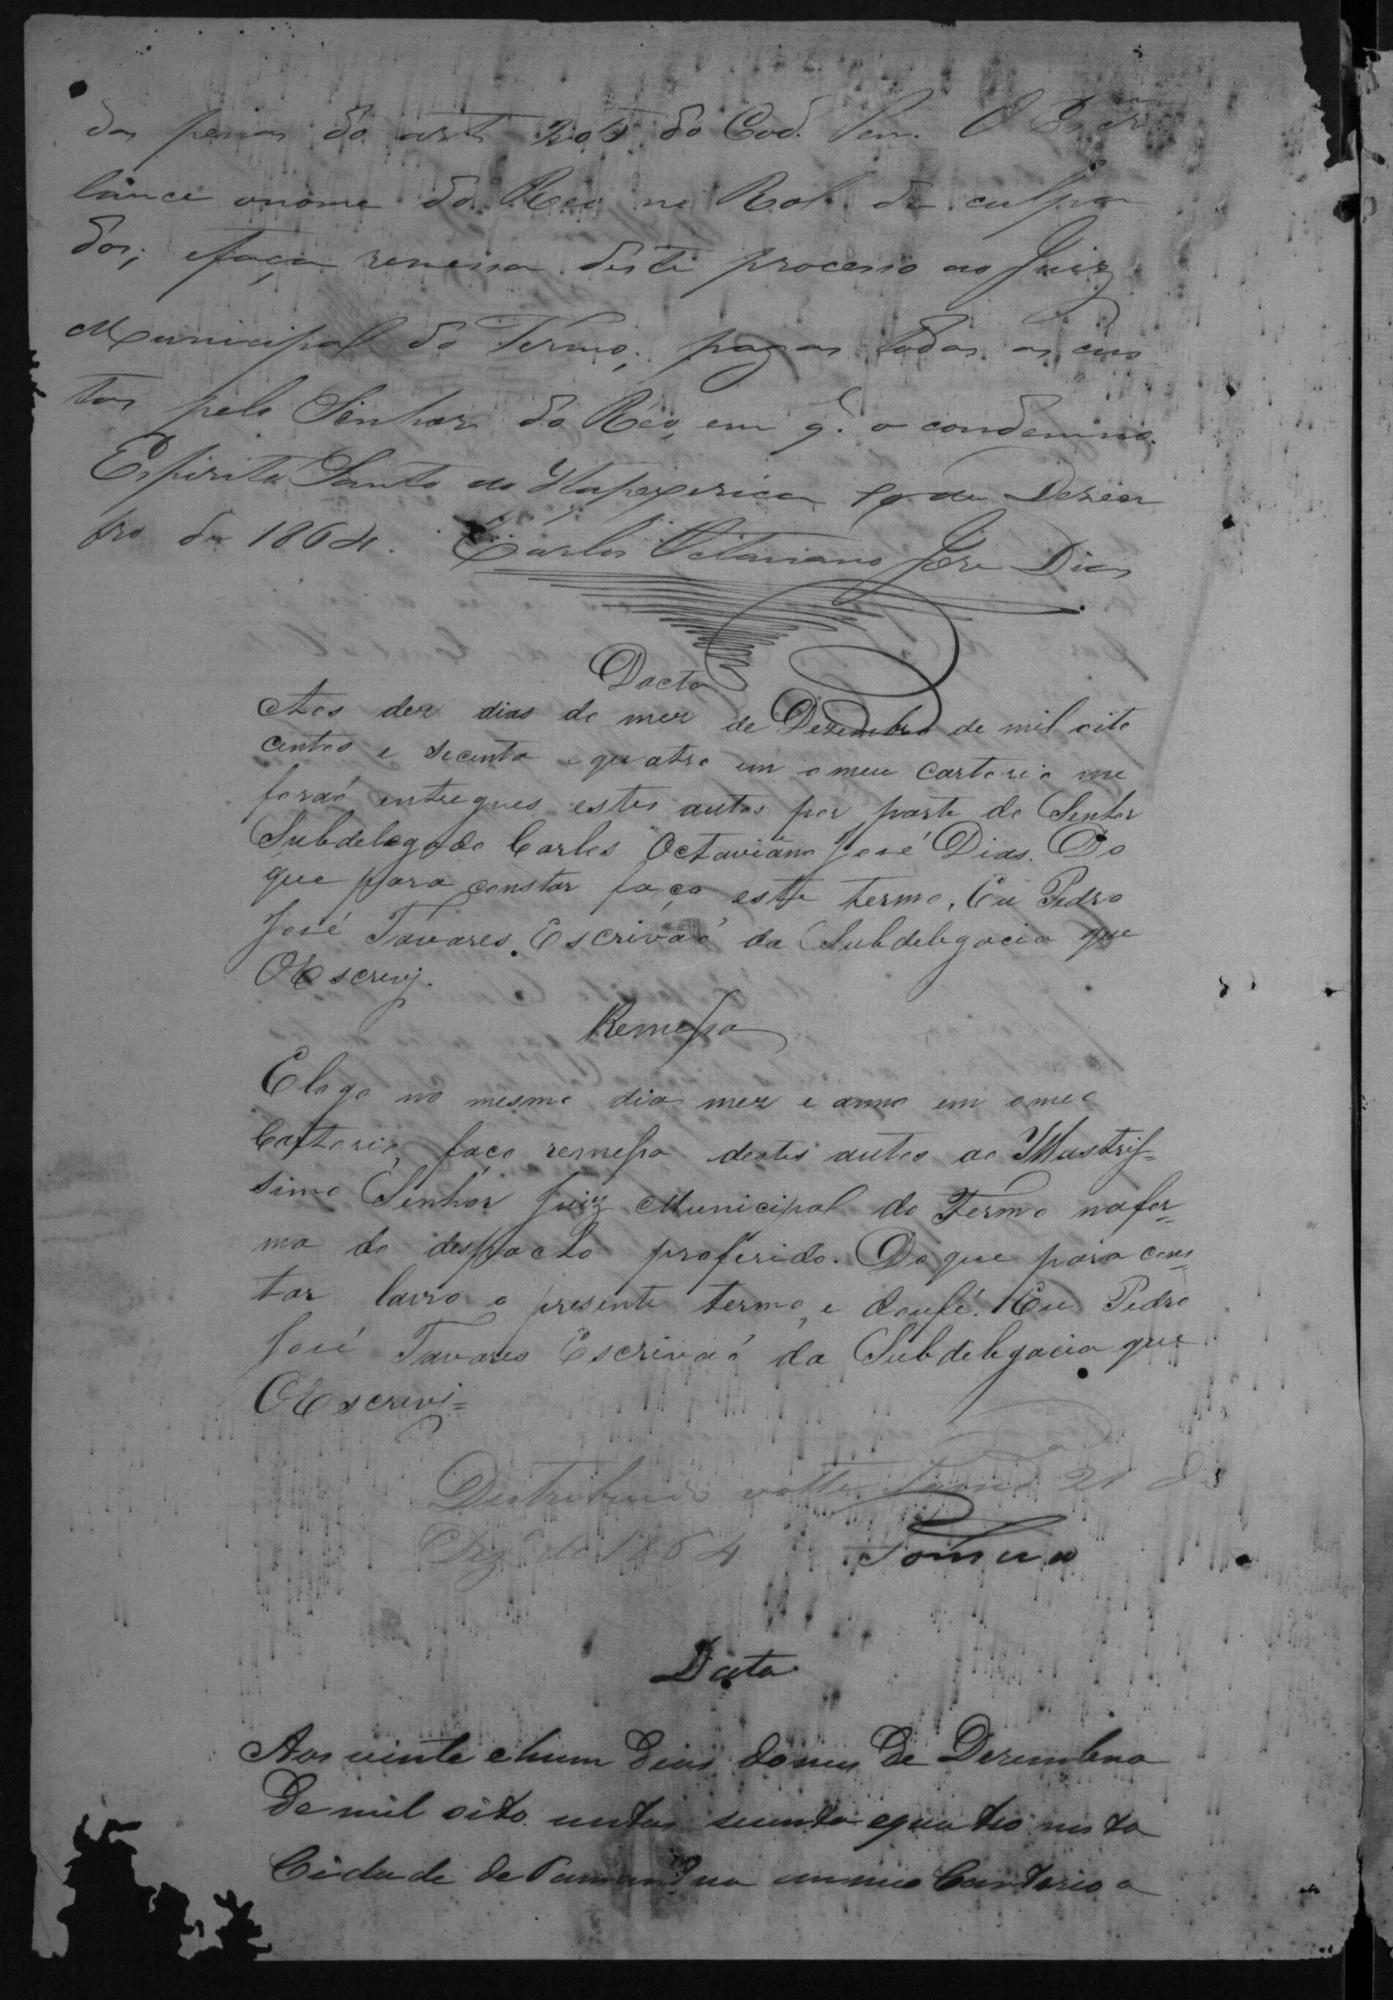 das penas do art 205 do Cod. Pen. O Escr.
lance onome do Reo no Rol de culpa
dos; efaça remessa deste processo ao Juiz
Municipal do Termo; pagas todas as cus
tas pelo Senhor do Reo, em q. o condemno.
Espirito Santo do Itapexerica 10 de Dezem
bro de 1864. Carlos Octaviano José Dias
Dacta
Aos dez dias do mez de Dezembro de mil oito
centos e secenta equatro em omeu cartorio me
foraõ entregues estes autos por parte do Senhor
Subdelegado Carlos Octaviano José Dias. Do
que para constar faço este termo. Eu Pedro
José Tavares Escrivaõ da Subdelegacia que
OEscrevj.
Remessa
Elogo no mesmo dia mez e anno em omeo
Cartorio, faço remessa destes autos ao Illustris=
simo Senhor Juiz Municipal do Termo nafor=
ma do despacho proferido. Do que para cons=
tar lavro o presente termo, e doufé. Eu Pedro
José Tavares Escrivaõ da Subdelegacia que
OEscrevj=
Destribuido volte. 21 de
Dezº de 1864
Data
Aos vinte ehum dias domes de Dezembro
de mil oito centos secenta equatro nesta
Cidade de Tamanduá emmeo Cartorio a